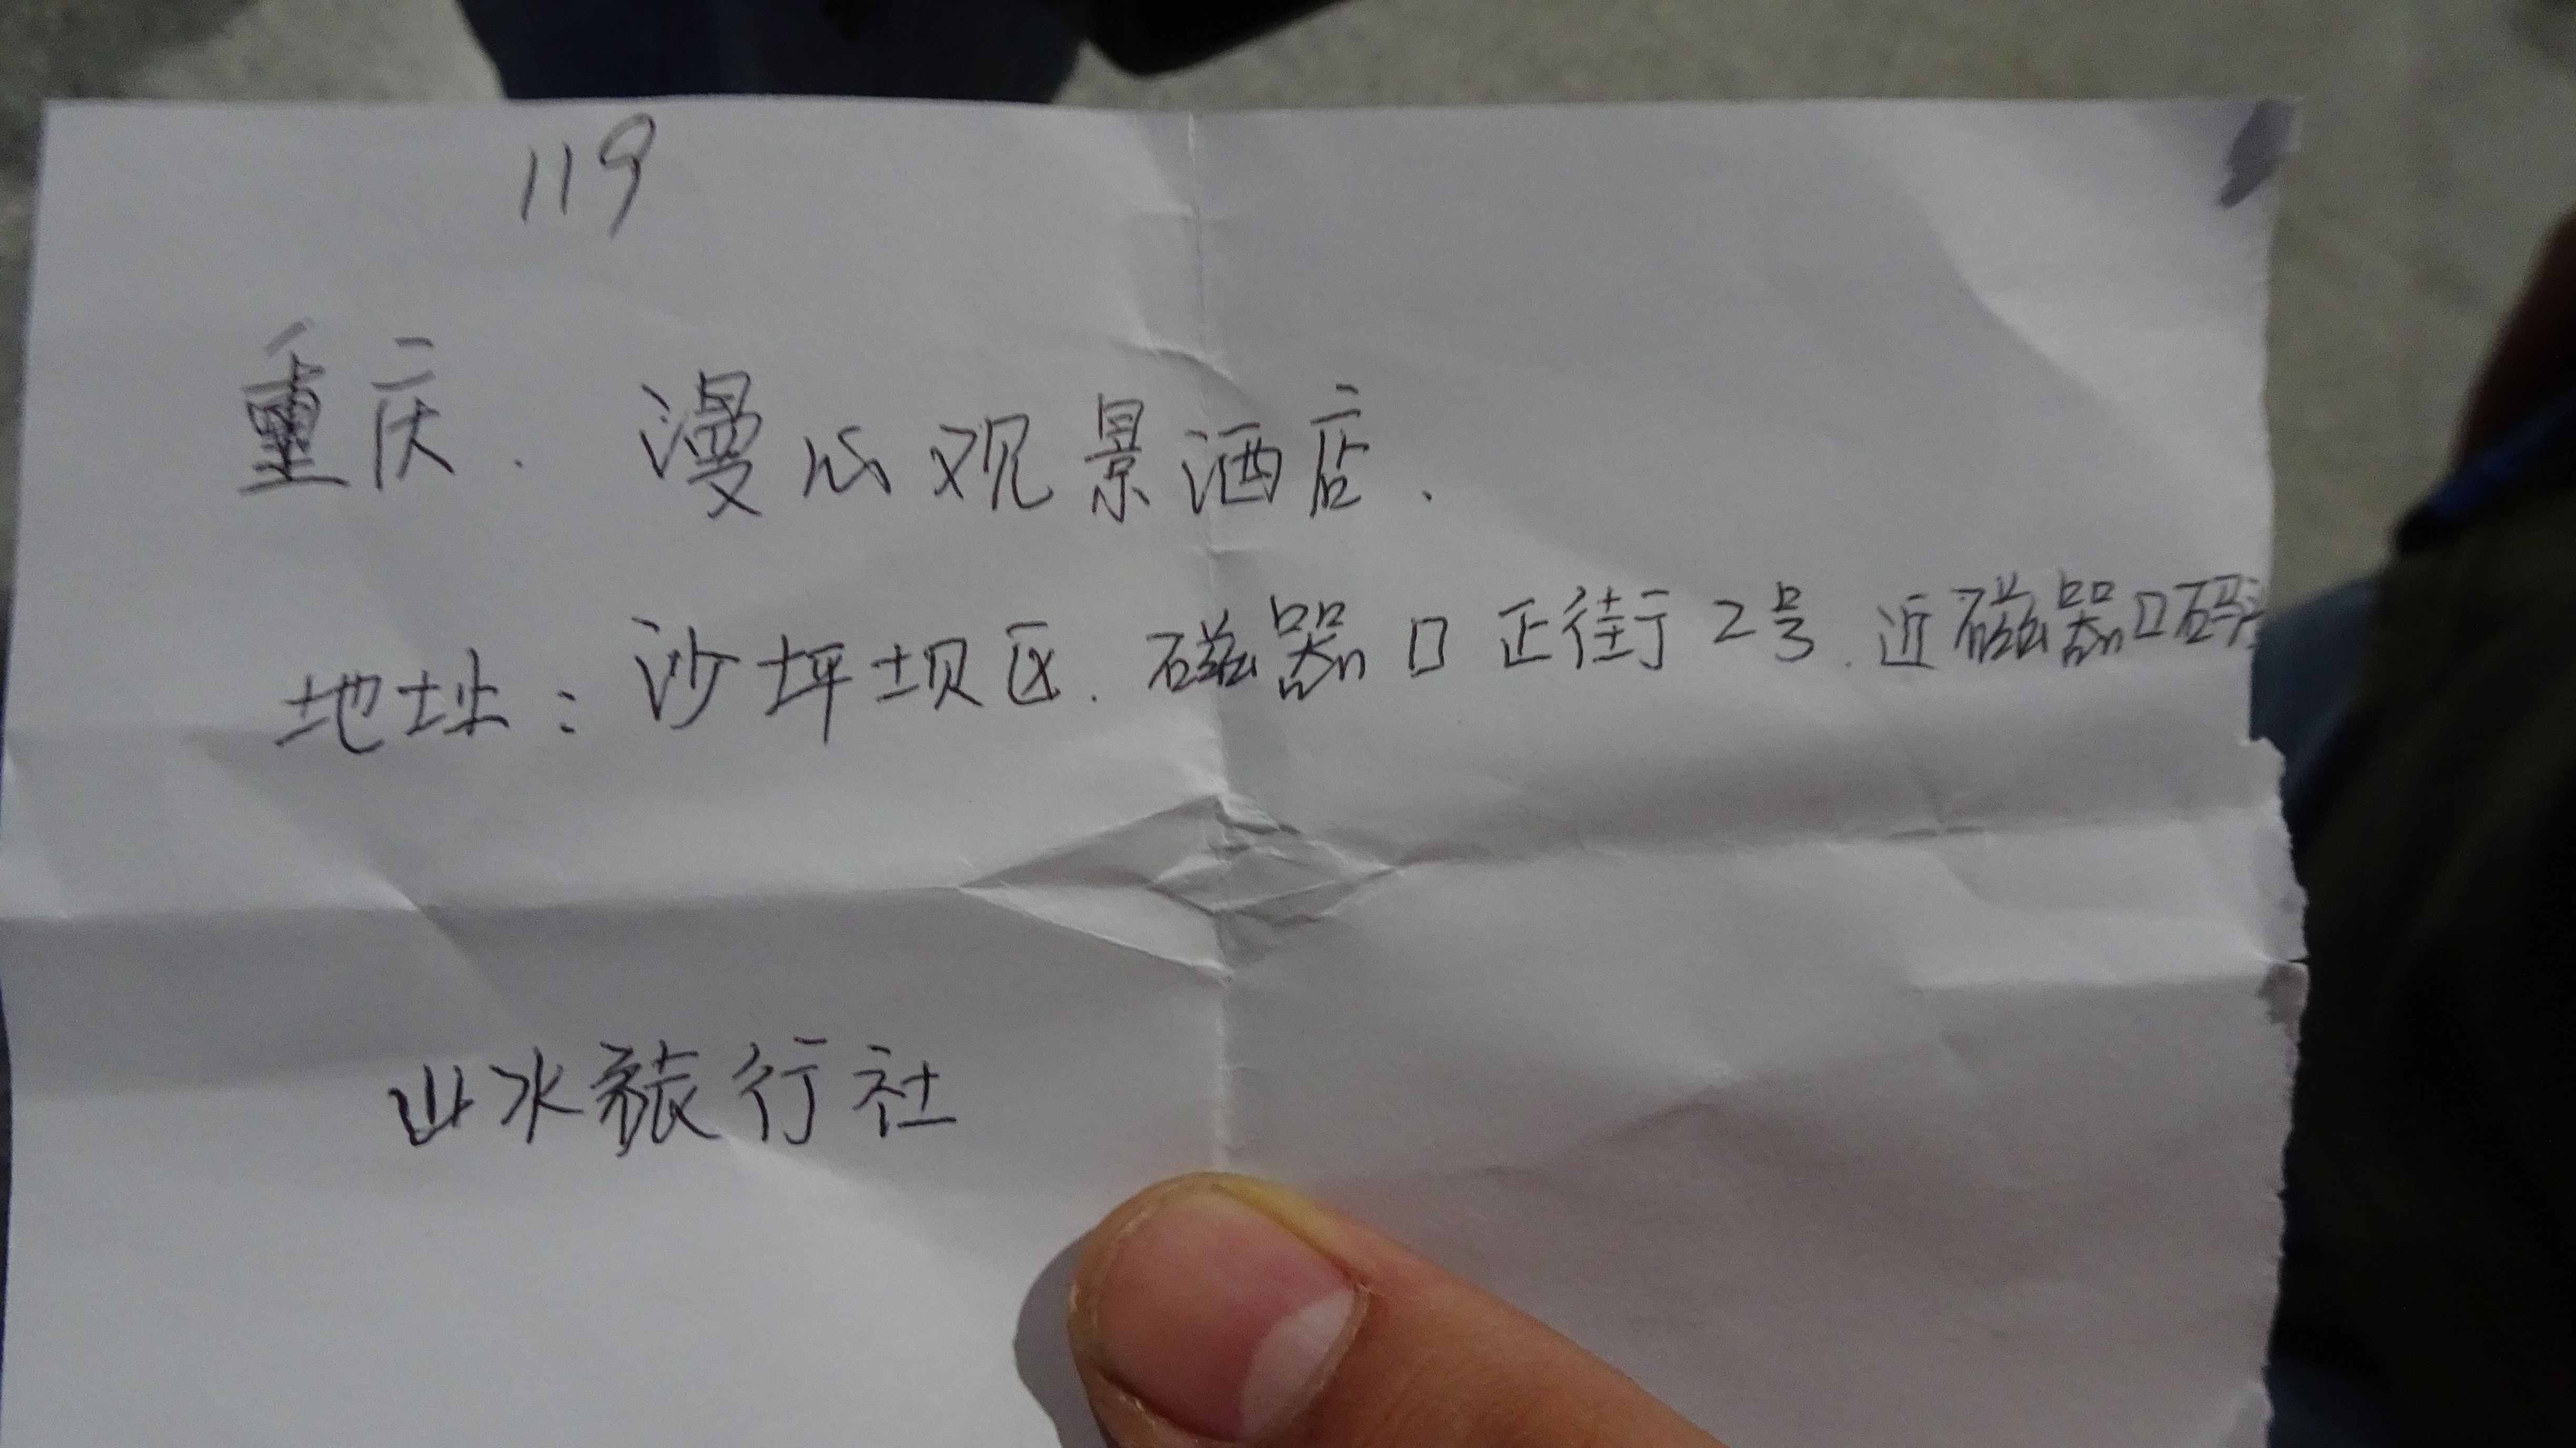 119
重庆. 漫心观景酒店.
地址: 沙坪坝区. 磁器口正街2号. 近磁器口码
山水旅行社